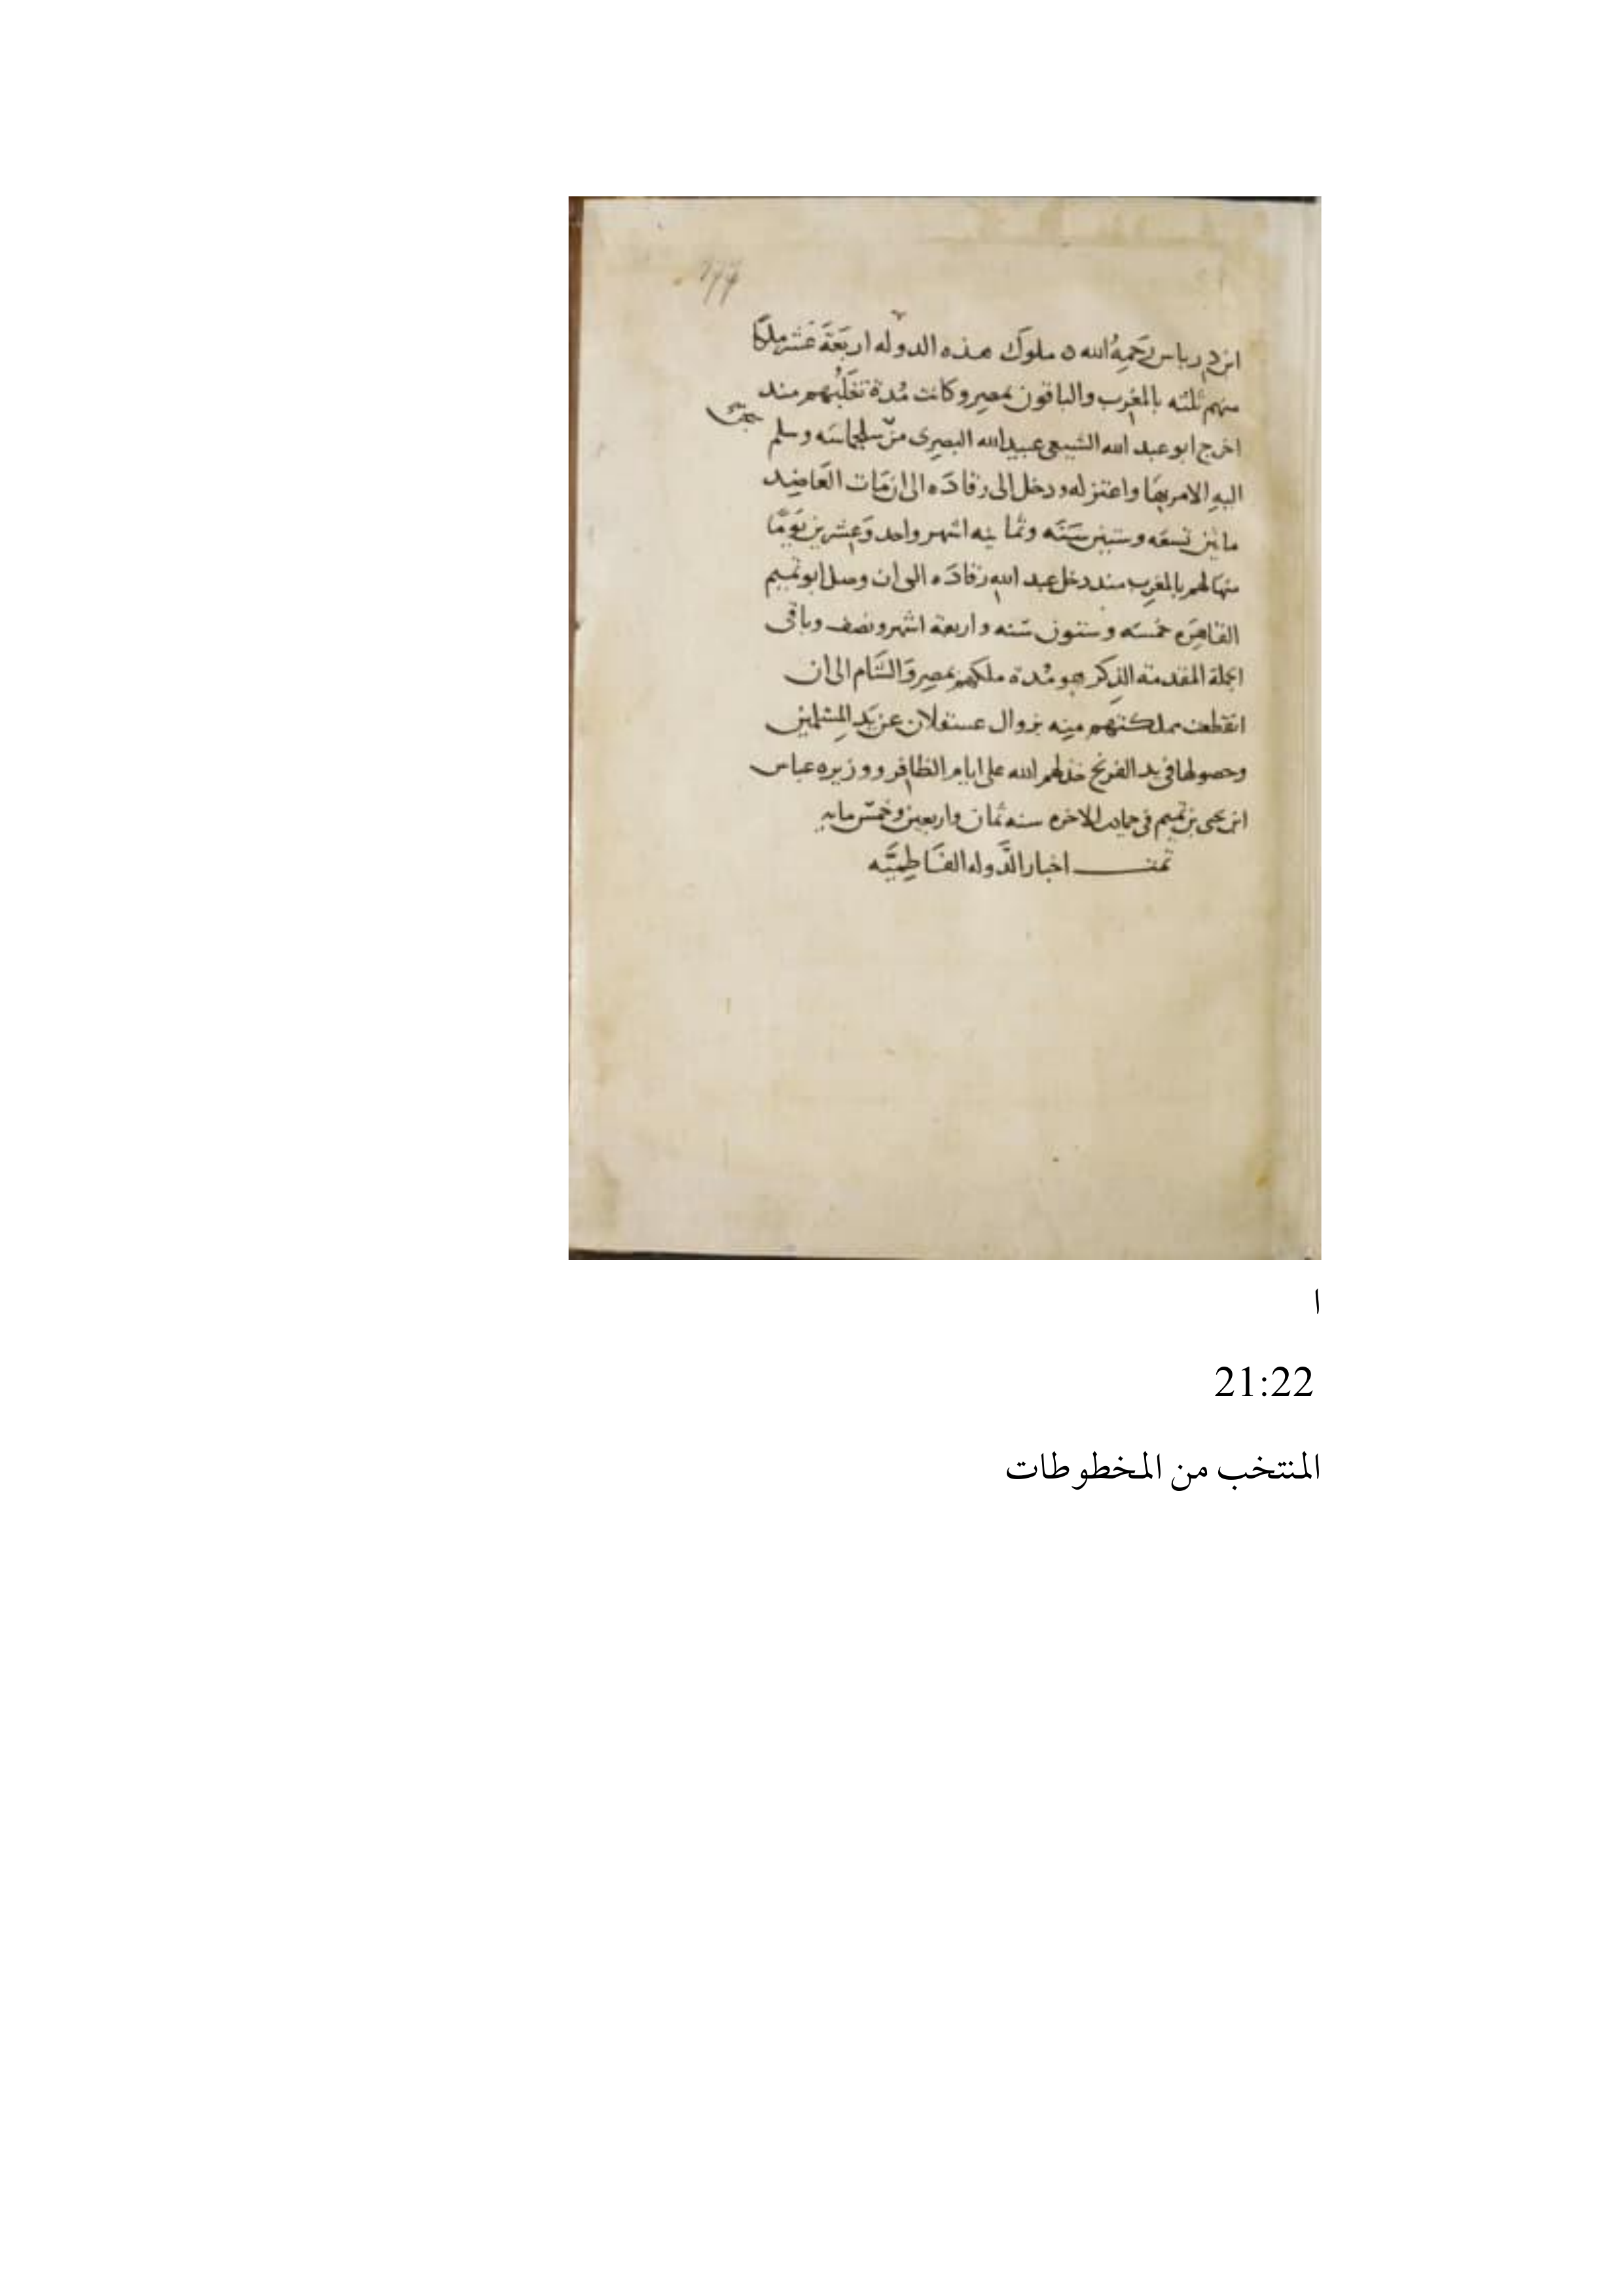 ابن درباس رحمه الله ملوك هذه الدوله اربعة عشر ملكا
منهم ثلثه بالمغرب والباقون بمصر وكانت مدة تغلبهم منذ
اخرج ابو عبد الله الشيعي عبيد الله البصرى من سلجماسه وسلم
اليه الامر بها واعتزله ودخل الى رقاده الى ان مات العاضد
مائتين تسعه وستين سنه وثمانيه اشهر واحد وعشرين يوما
منها لهم بالمغرب منذ دخل عبد الله رقاده الى ان وصل ابو تميم
القاهره خمسه وستون سنه واربعة اشهر ونصف وباقى
الجملة المقدمة الذكر هو مدة ملكهم بمصر والشام الى ان
انقطعت مملكتهم منه بزوال عسقلان عن يد المسلمين
وحصولها في يد الفرنج خذلهم الله على ايام الظافر ووزيره عباس
ابن يحيى بن تميم في جمادى الاخره سنه ثمان واربعين وخمس مايه
تمت اخبار الدوله الفاطميه
ا
21:22
المنتخب من المخطوطات